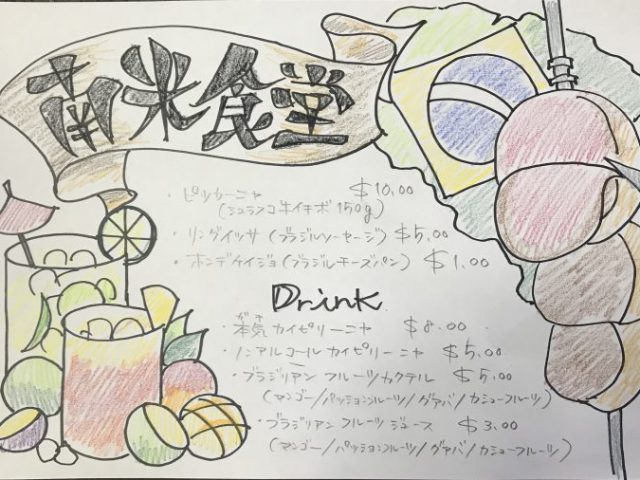 南米食堂
・ピッカーニャ $10.00
(シュラスコ牛イチボ150g)
・リングイッサ(ブラジルソーセージ) $5.00
・ポンデケイジョ(ブラジルチーズパン) $1.00
Drink
・本気カイピリーニャ $8.00
ガチ
・ノンアルコールカイピリーニャ $5.00
・ブラジリアンフルーツカクテル $5.00
(マンゴー/パッションフルーツ/グァバ/カシューフルーツ)
・ブラジリアンフルーツジュース $3.00
(マンゴー/パッションフルーツ/グァバ/カシューフルーツ)